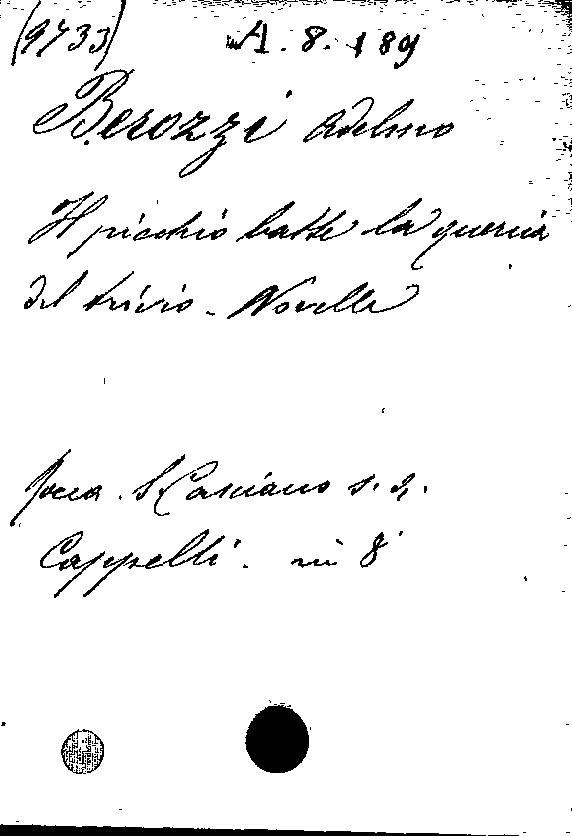 (9733) A. 8. 189
Berozzi Adelmo
Il picchio batte la quercia
del trivio - Novelle
Rocca S. Casciano s. d.
Cappelli. in 8°